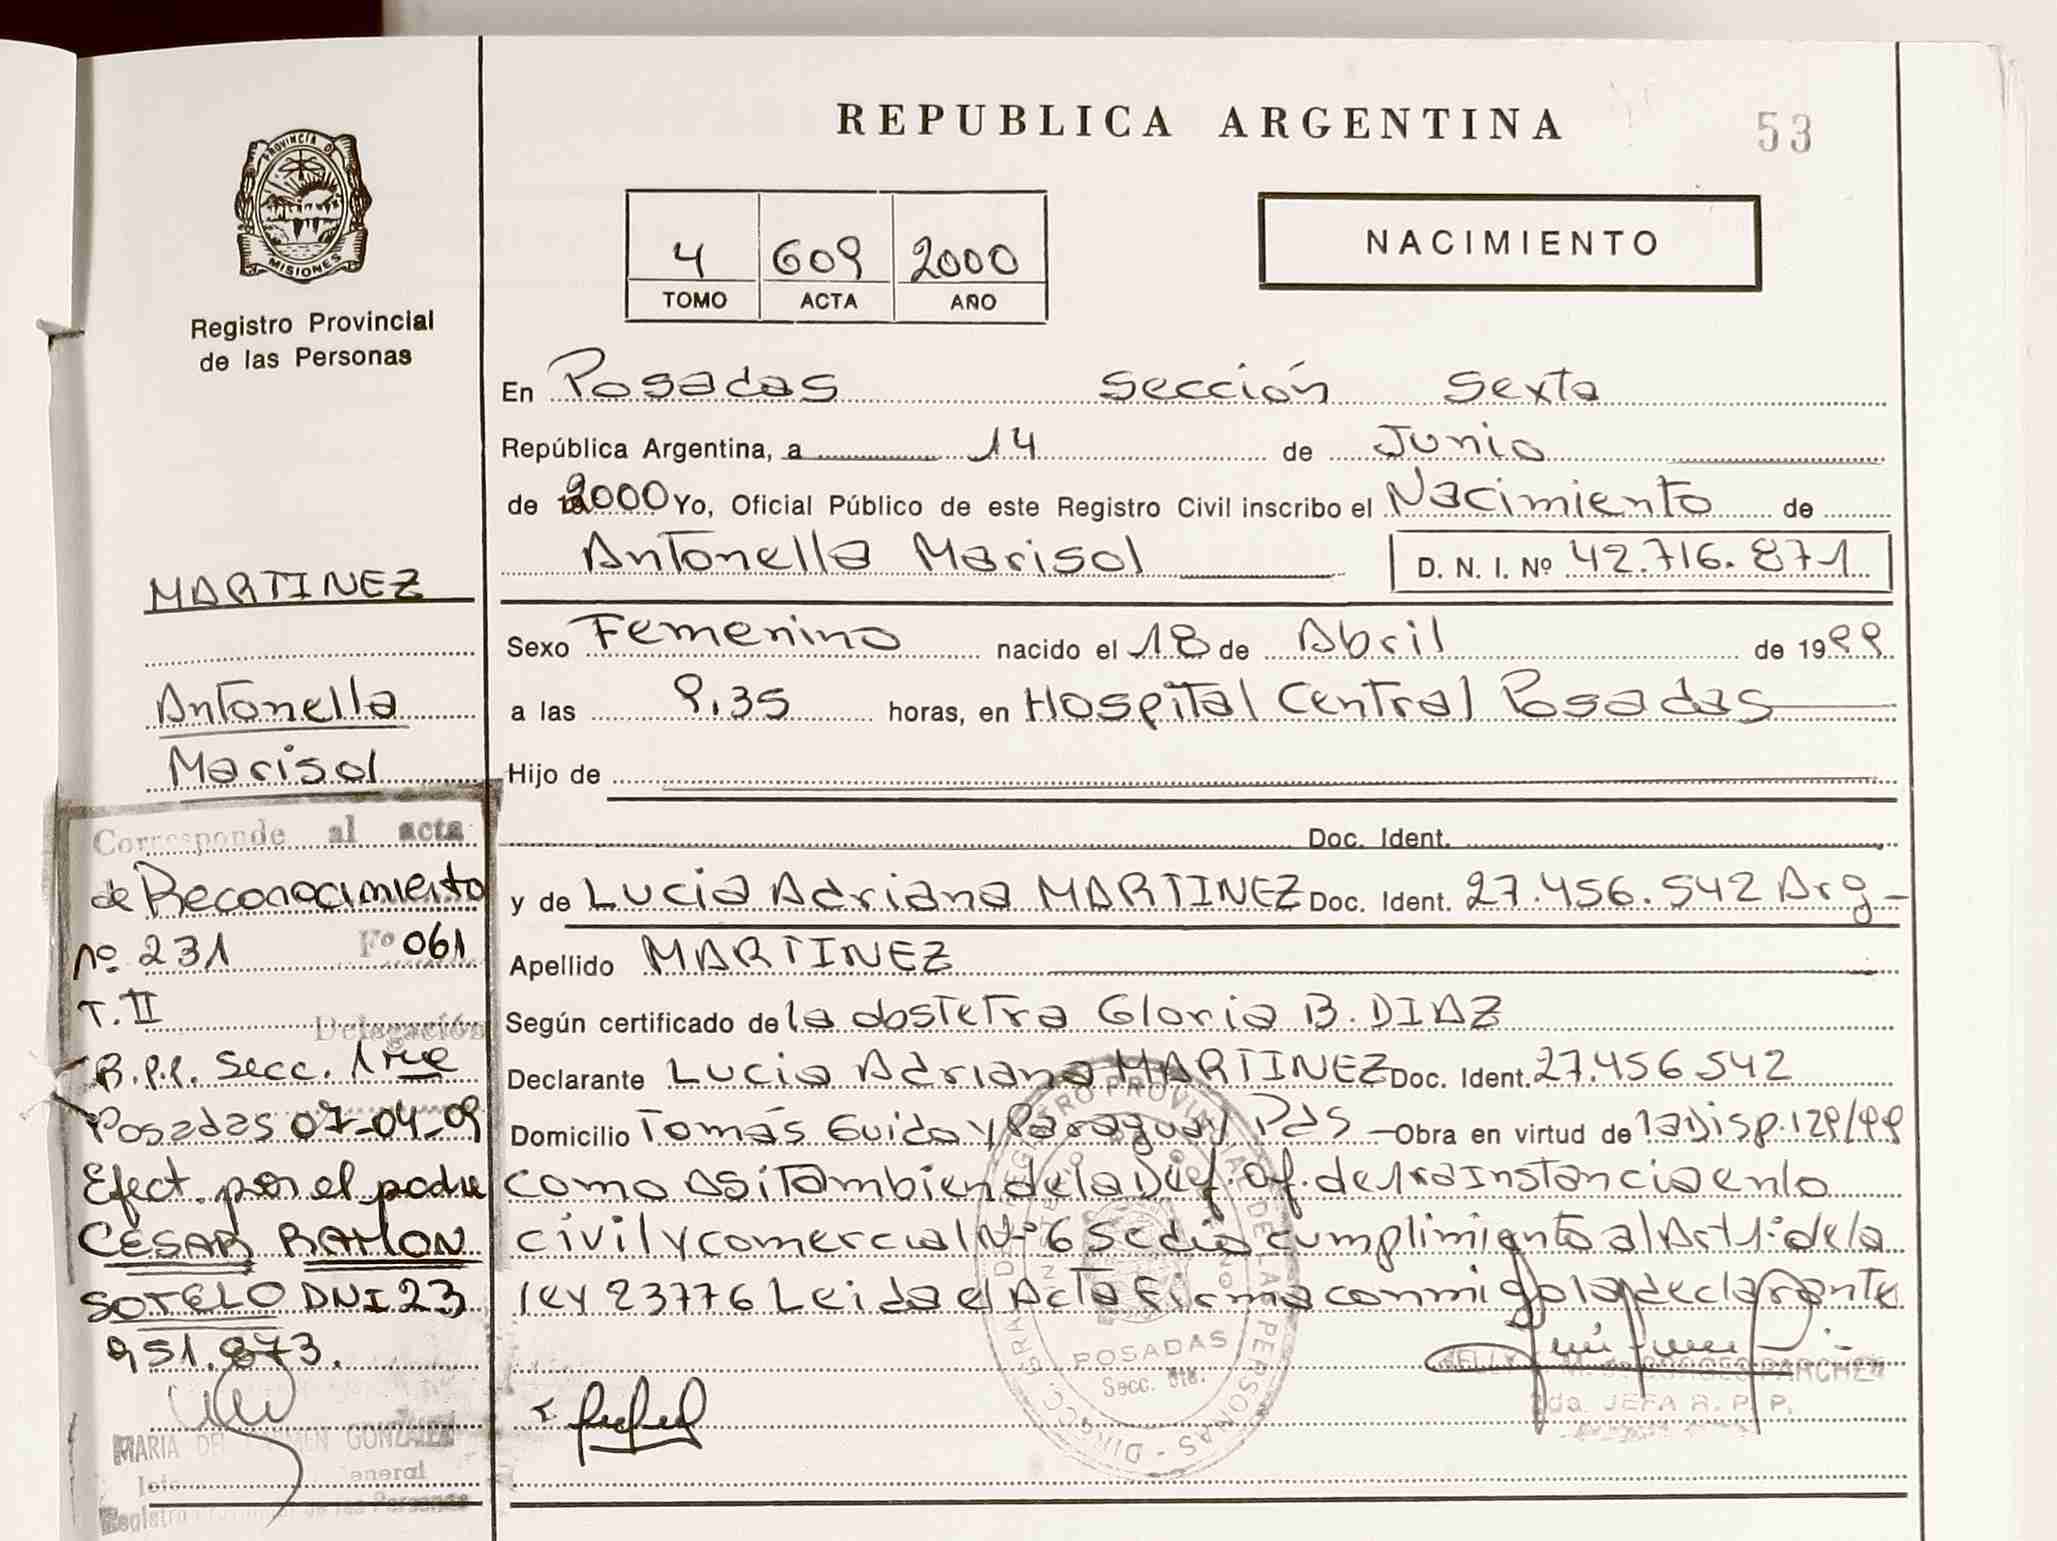 REPUBLICA ARGENTINA
53
PROVINCIA DE
MISIONES
Registro Provincial
de las Personas
4 609 2000
TOMO ACTA AÑO
NACIMIENTO
En Posadas Sección Sexta
República Argentina, a 14 de Junio
de 2000 Yo, Oficial Público de este Registro Civil inscribo el Nacimiento de
Antonella Marisol D. N. I. Nº 42.716.871
Sexo Femenino nacido el 18 de Abril de 1999
a las 9.35 horas, en Hospital Central Posadas
Hijo de
Doc. Ident.
y de Lucia Adriana MARTINEZ Doc. Ident. 27.456.542 Arg-
Apellido MARTINEZ
Según certificado de la obstetra Gloria B. DIAZ
Declarante Lucia Adriana MARTINEZ Doc. Ident. 27.456.542
Domicilio Tomás Guido y Paraguay Pds - Obra en virtud de la Disp. 129/99
como asi Tambien de la Def. Of. de 1ra Instancia en lo
civil y comercial Nº 6 se dió cumplimiento al Art 1º de la
ley 23776 Leida el Acta Firma conmigo la declarante
MARTINEZ
Antonella
Marisol
Corresponde al acta
de Reconocimiento
nº 231 Fº 061
T. II
Delegación
R.P.P. Secc. 1ra
Posadas 07-04-09
Efect. por el padre
CESAR RAMON
SOTELO DNI 23
951.873.
MARIA DEL CARMEN GONZALEZ
General
Registro Provincial de las Personas
POSADAS
Secc. 6ta.
2da. JEFA R. P. P.